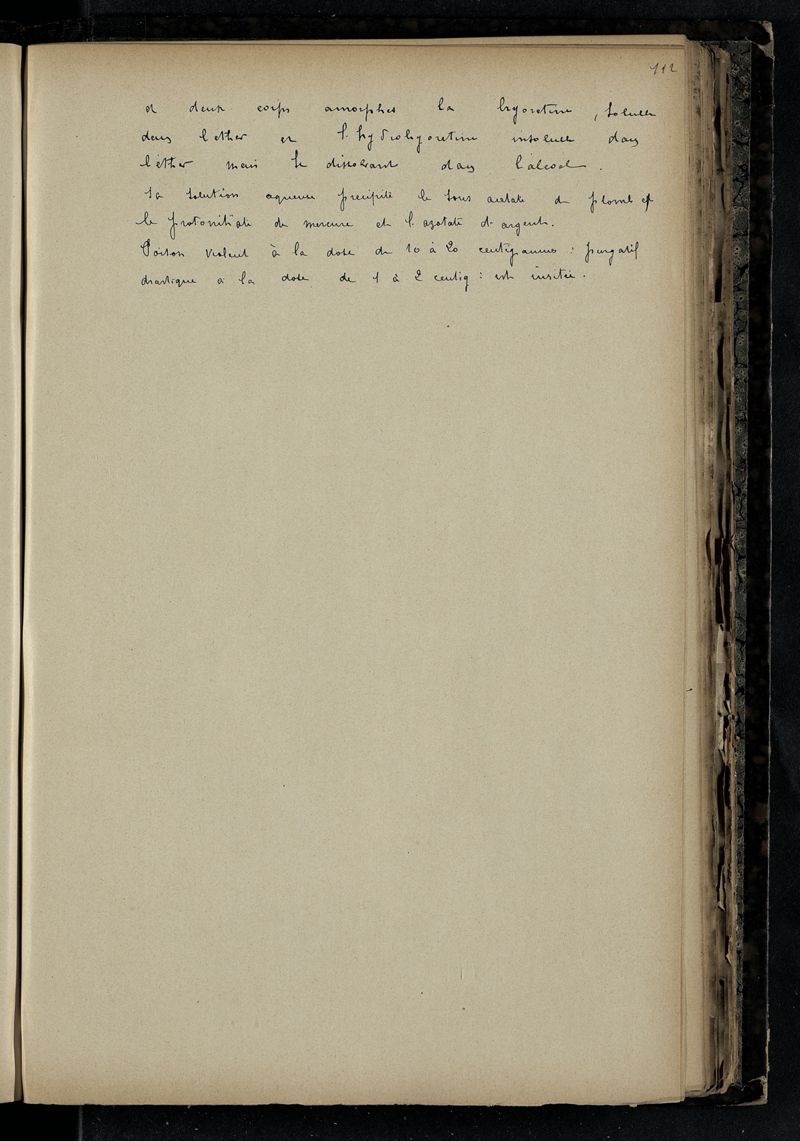 112
et deux corps amorphes la bryoretine, soluble
dans l'ether et l'hydrobryoretine insoluble dans
l'éther mais se dissolvant dans l'alcool.
Sa solution aqueuse precipite le sous acetate de plomb et
le protonitrate de mercure et l'azotate d'argent.
Poison violent à la dose de 10 à 20 centigrammes : purgatif
drastique à la dose de 1 à 2 centig : est usitée.